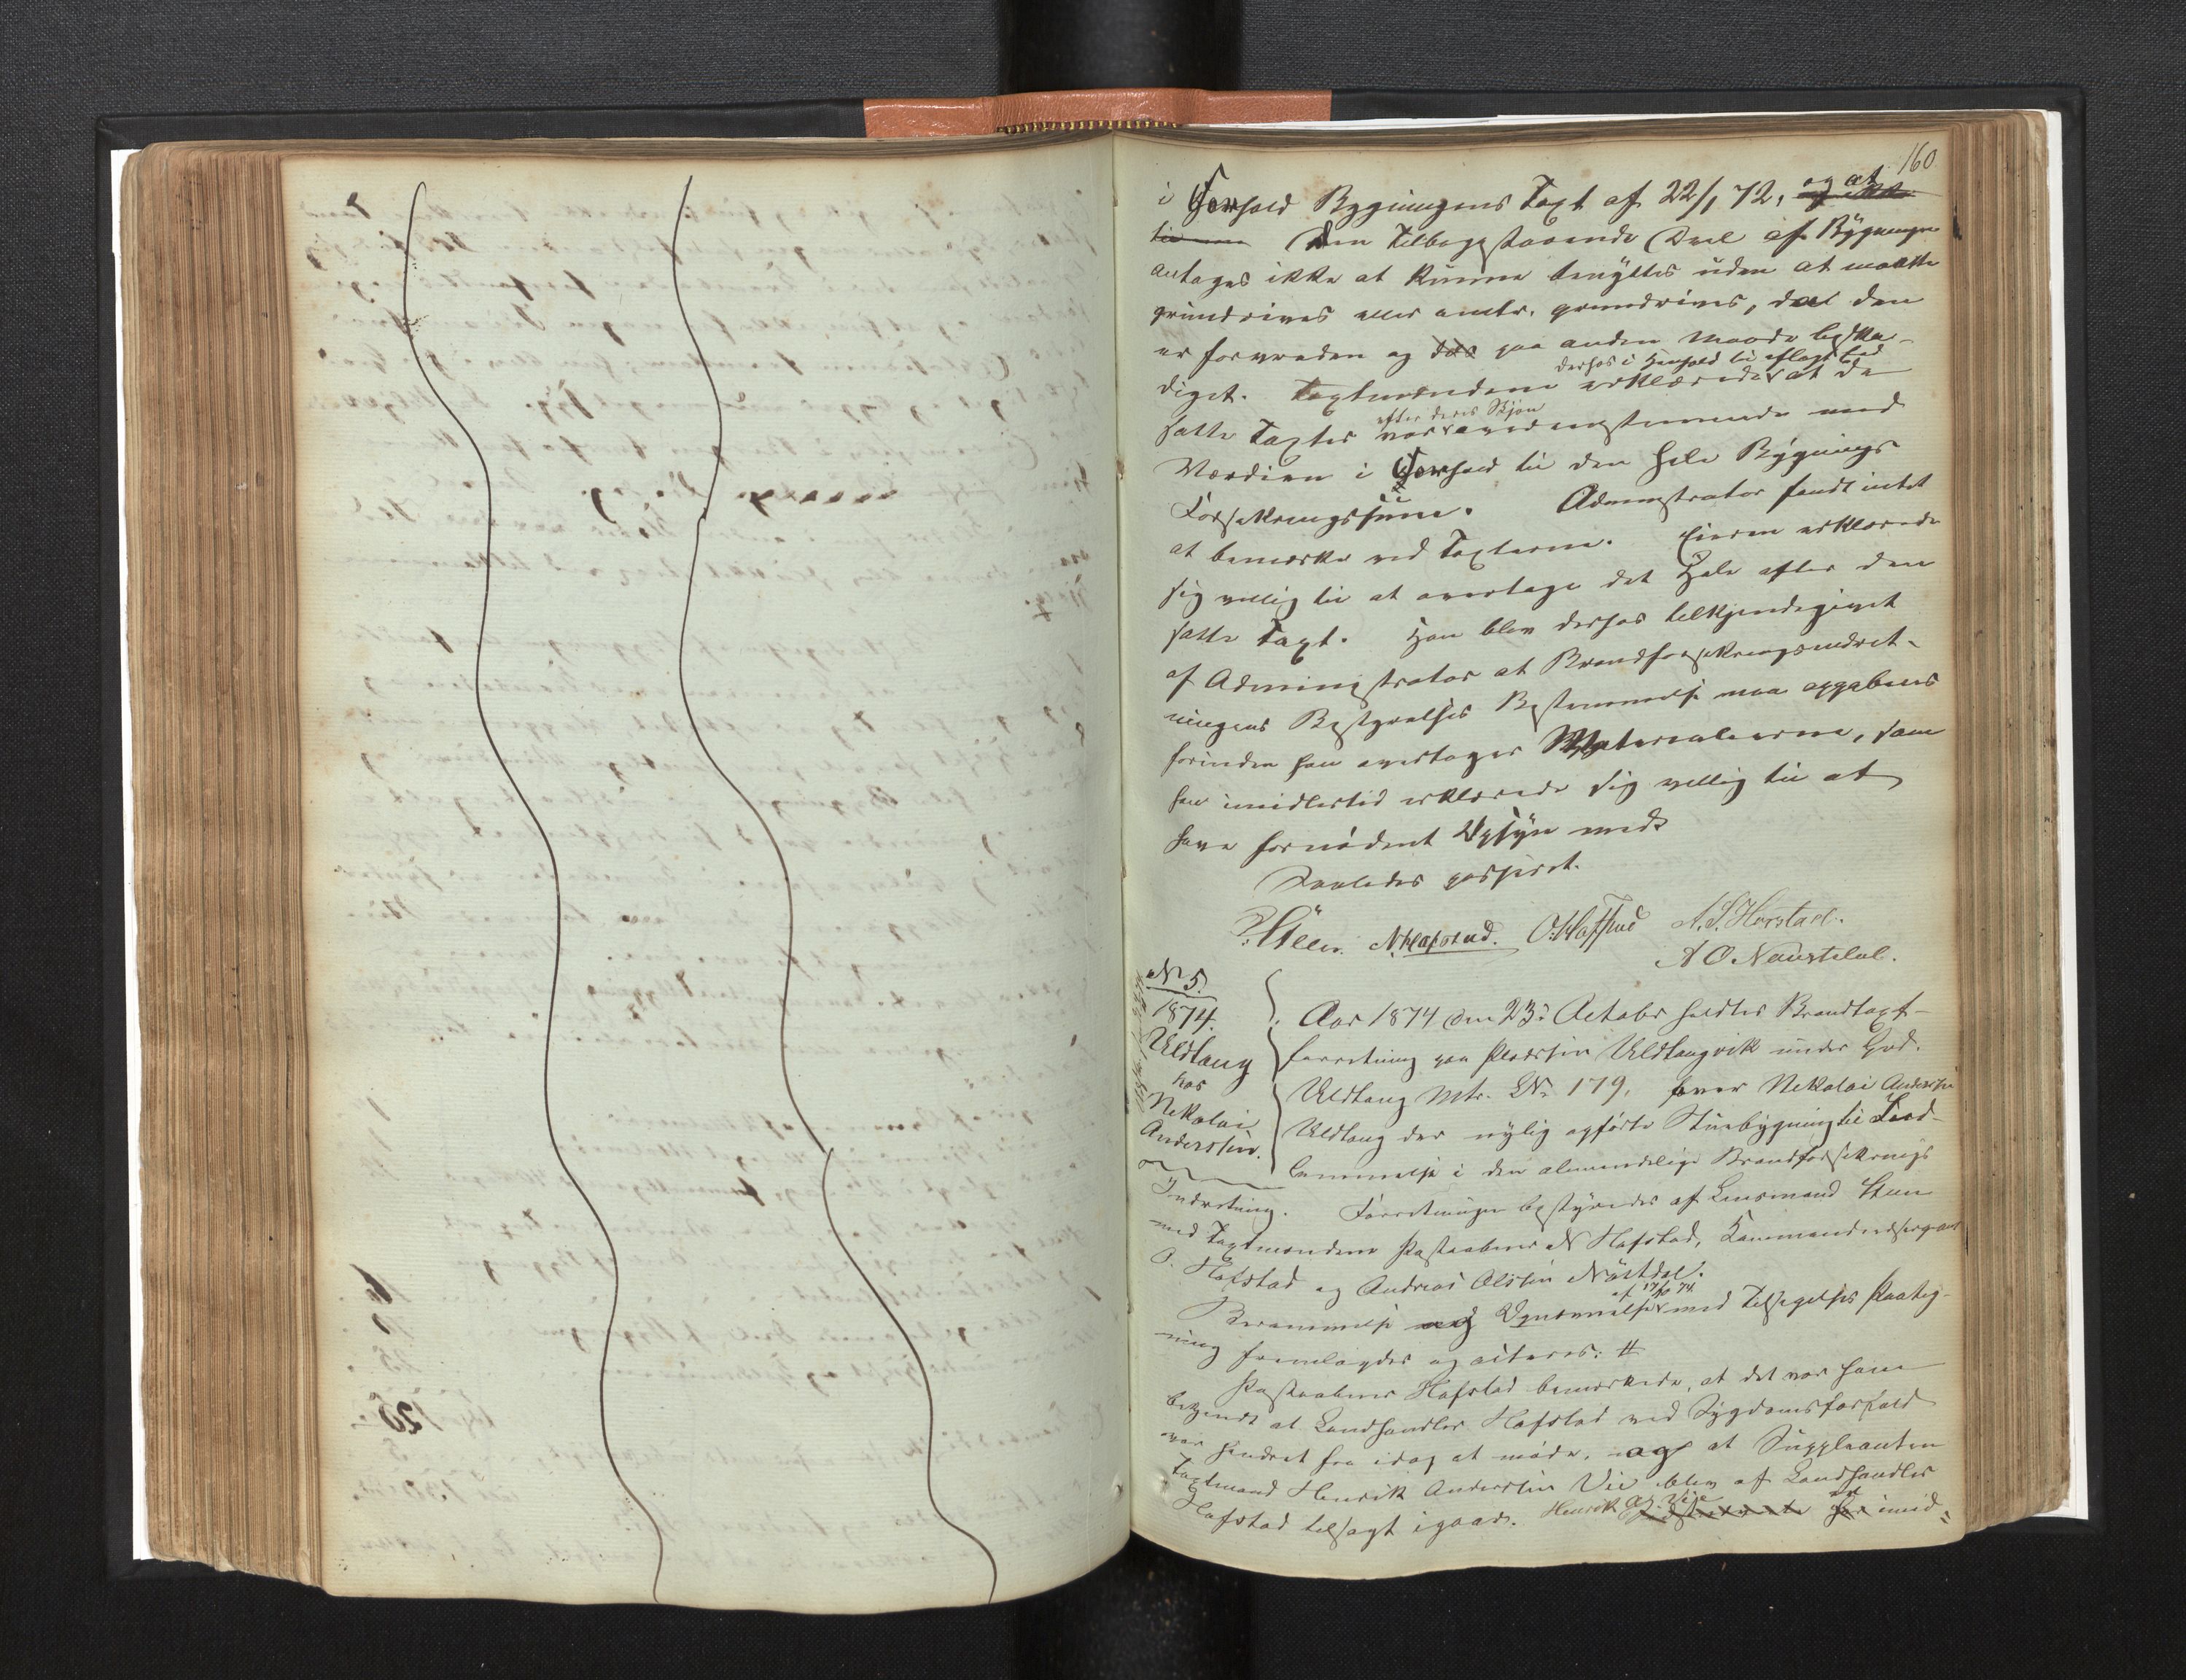 160
i Forhold Bygningens Taxt af 22/1 72, og at
den tilbagestaaende Deel af Bygningen
antages ikke at kunne benyttes uden at maatte
grundrives eller omtr. grundrives, da den
er forvreden og paa anden Maade beska-
diget. Taxtmændene erklærede derhos i Henhold til aflagt Eed at de
satte Taxter efter deres Skjøn var overensstemmende med
Værdien i Forhold til den hele Bygnings
Forsikringssum. Administrator fandt intet
at bemærke ved Taxterne. Eieren erklærede
sig villig til at overtage det Hele efter den
satte Taxt. Han blev derhos tilkjendegivet
af Administrator at Brandforsikringsindret-
ningens Bestyrelses Bestemmelse maa oppebies
forinden han overtager Materialierne, som
han imidlertid erklærede sig villig til at
have fornødent Opsyn med.
Saaledes passeret.
Steen. N. Hafstad. O. Hafstad A. S. Herstad.
A O Naustdal.
No 5.
1874.
Uldtang
hos
Nikolai
Anderssen.
Aar 1874 den 23de October holdtes Brandtaxt-
forretning paa Pladsen Uldtangvik under Grd.
Uldtang Mtr. LNr 179, over Nikolai Anderssen
Uldtang der nylig opførte Stuebygning til Ind-
lemmelse i den almindelige Brandforsikrings
Indretning. Forretningen bestyredes af Lensmand Steen
med Taxtmændene Postaabner N Hafstad, Kommandeersergeant
O. Hafstad og Andreas Olssen Naustdal.
Berammelse med Opnævnelse af 17/10 74 med Tilsigelses Paateg-
ning fremlagdes og aiteres: #
Postaabner Hafstad bemærkede, at det var ham
bekjendt at Landhandler Hafstad ved Sygdomsforfald
var hindret fra idag at møde, og at Suppleanten
Taxtmand Henrik Anderssen Vie blev af Landhandler
Hafstad tilsagt igaar. Henrik A. Vie imid-